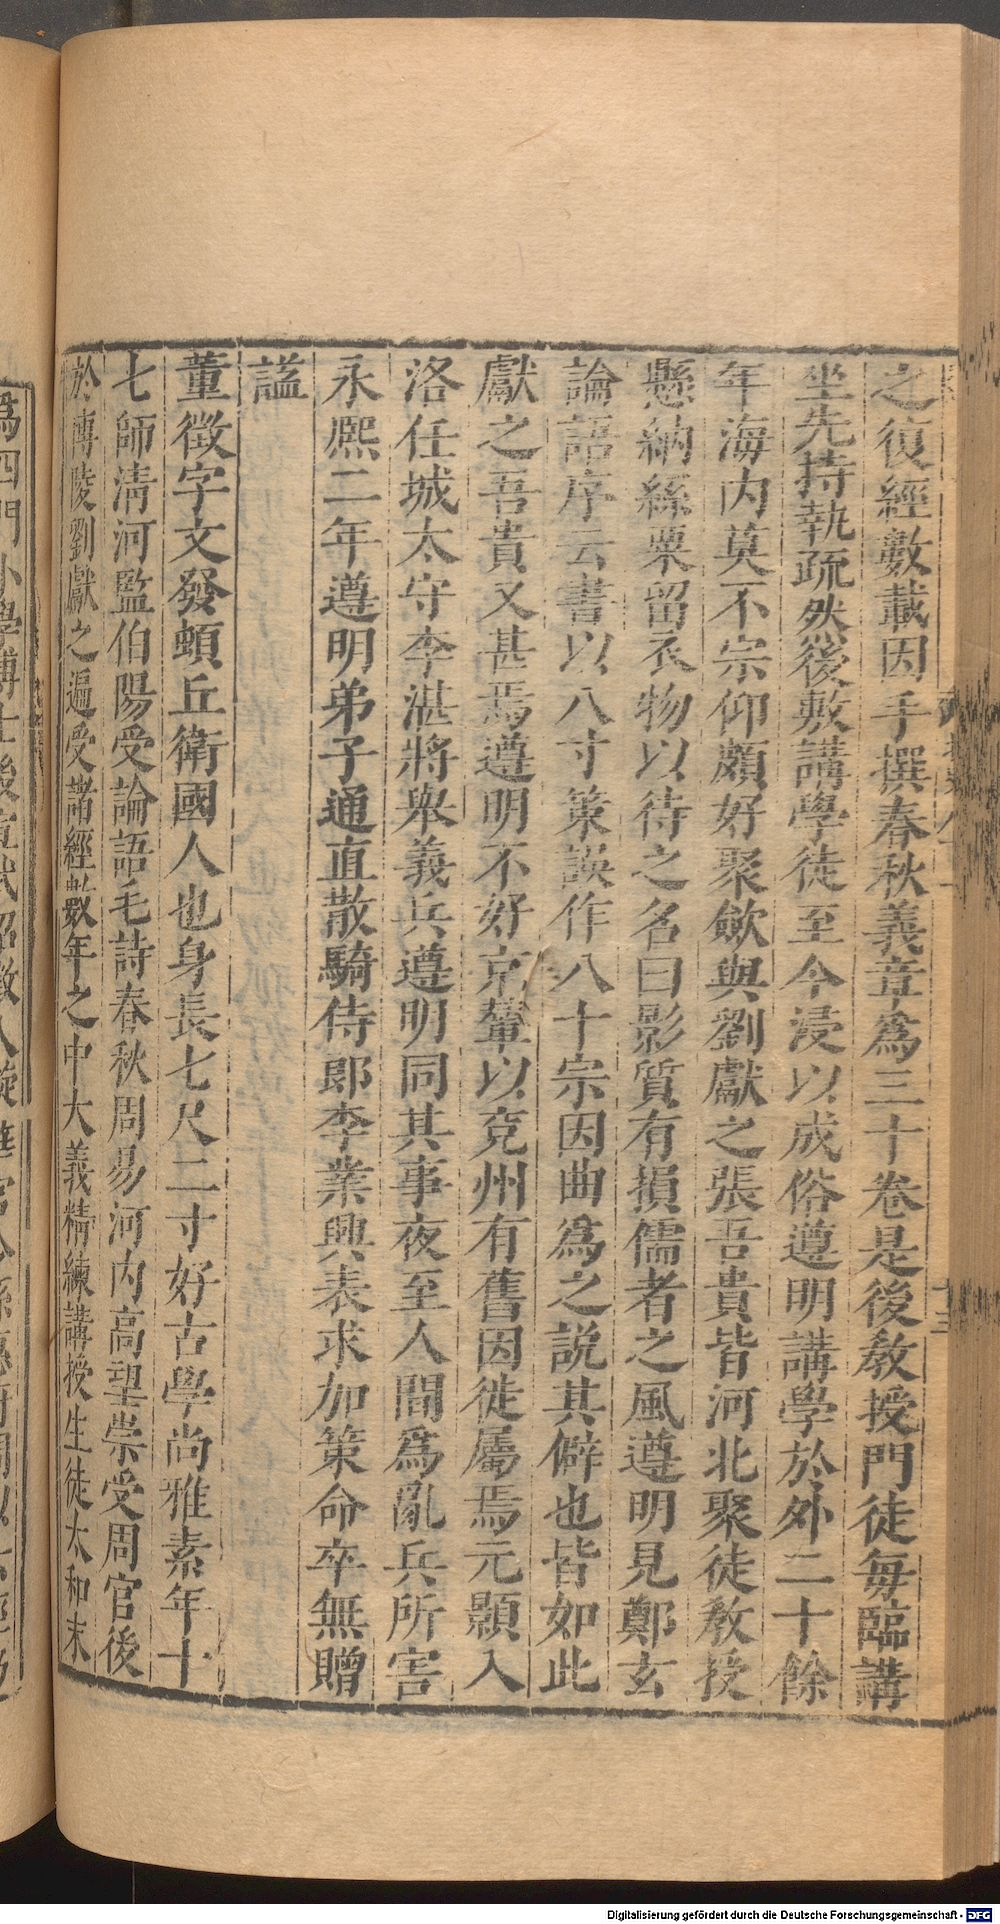 之復經數載因手撰春秋義章爲三十卷是後敎授門徒每臨講
坐先持執疏然後敷講學徒至今浸以成俗遵明講學於外二十餘
年海内莫不宗仰頗好聚歛與劉獻之張吾貴皆河北聚徒敎授
懸納絲粟留衣物以待之名曰影質有損儒者之風遵明見鄭玄
論語序云書以八寸策誤作八十宗因曲爲之説其僻也皆如此
獻之吾貴又甚焉遵明不好京輦以兗州有舊因徙屬焉元顥入
洛任城太守李湛將舉義兵遵明同其事夜至人間爲亂兵所害
永熈二年遵明弟子通直散騎侍郎李業興表求加策命卒無贈
謚
董徵字文發頓丘衛國人也身長七尺二寸好古學尚雅素年十
七師清河監伯陽受論語毛詩春秋周易河内高望崇受周官後
於博陵劉獻之遍受諸經數年之中大義精練講授生徒太和末
爲四門小學博士後宣武詔徵入
Digitalisierung gefördert durch die Deutsche Forschungsgemeinschaft - DFG